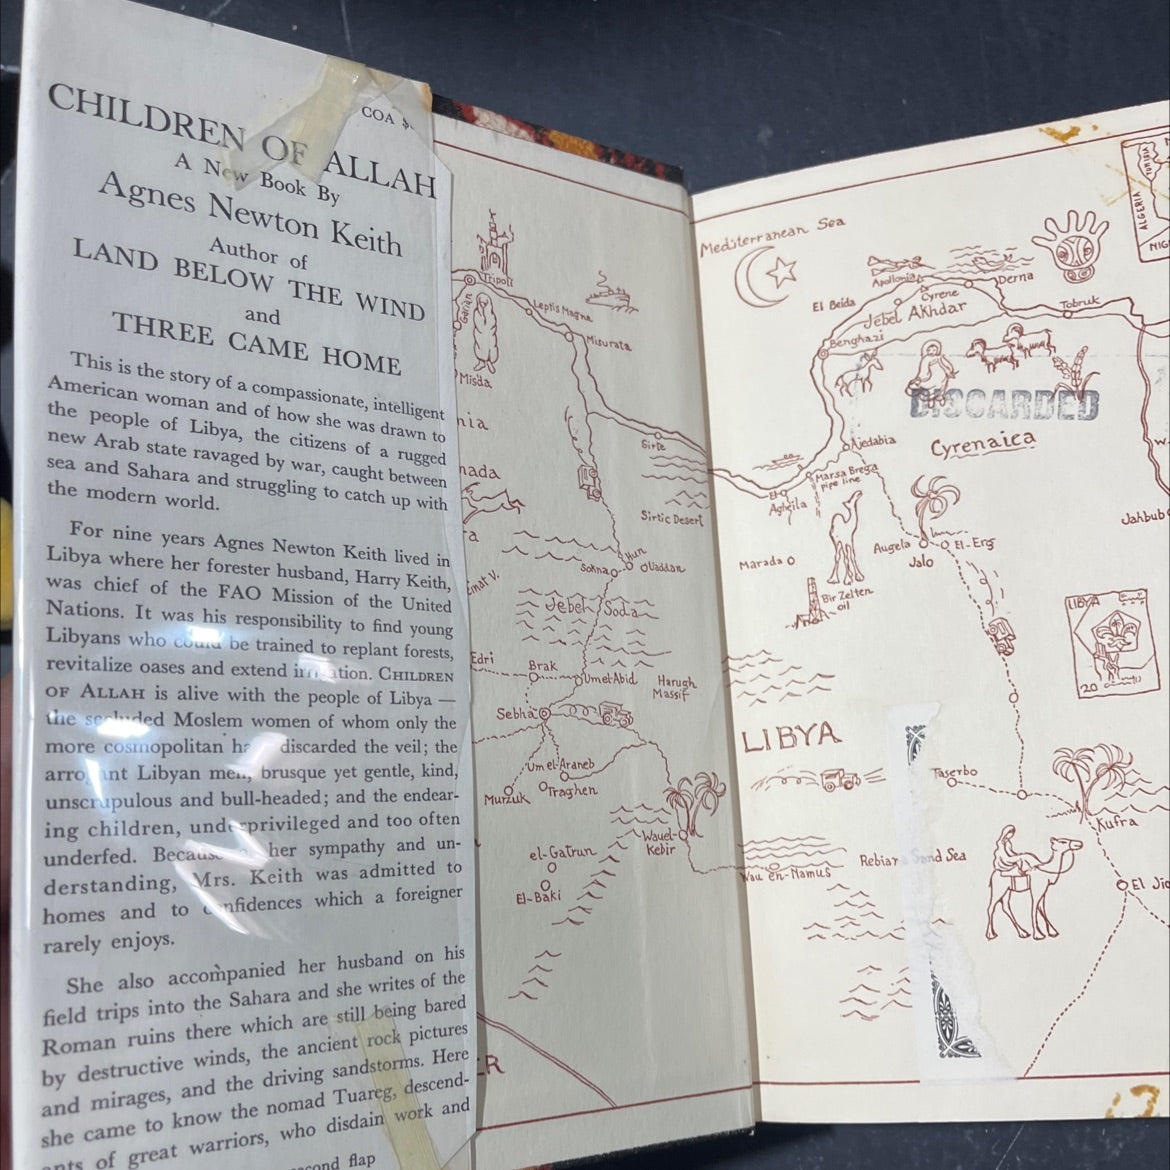 COA $
CHILDREN OF ALLAH
A New Book By
Agnes Newton Keith
Author of
LAND BELOW THE WIND
and
THREE CAME HOME
This is the story of a compassionate, intelligent
American woman and of how she was drawn to
the people of Libya, the citizens of a rugged
new Arab state ravaged by war, caught between
sea and Sahara and struggling to catch up with
the modern world.
For nine years Agnes Newton Keith lived in
Libya where her forester husband, Harry Keith,
was chief of the FAO Mission of the United
Nations. It was his responsibility to find young
Libyans who could be trained to replant forests,
revitalize oases and extend irrigation. CHILDREN
OF ALLAH is alive with the people of Libya —
the secluded Moslem women of whom only the
more cosmopolitan ha discarded the veil; the
arrogant Libyan men, brusque yet gentle, kind,
unscrupulous and bull-headed; and the endear-
ing children, underprivileged and too often
underfed. Because of her sympathy and un-
derstanding, Mrs. Keith was admitted to
homes and to confidences which a foreigner
rarely enjoys.
She also accompanied her husband on his
field trips into the Sahara and she writes of the
Roman ruins there which are still being bared
by destructive winds, the ancient rock pictures
and mirages, and the driving sandstorms. Here
she came to know the nomad Tuareg, descend-
ants of great warriors, who disdain work and
second flap
Tripoli
Garian
Leptis Magna
Misurata
Misda
nia
Sirte
nada
Sirtic Desert
ra
Hun
Sokna
Uaddan
inat V.
Jebel Soda
Edri
Brak
Umel-Abid
Harugh
Massif
Sebha
Um el-Araneb
Murzuk
Traghen
Wau el-
Kebir
el-Gatrun
El-Baki
ER
Mediterranean Sea
ALGERIA
TUNISIA
NIG
Apollonia
Derna
El Beida
Cyrene
Jebel Akhdar
Tobruk
Benghazi
DISCARDED
Cyrenaica
Ajedabia
Marsa Brega
pipe line
El
Agheila
Jahbub
Augela
Jalo
El-Erg
Marada
Bir Zelten
oil
LIBYA
20
LIBYA
Taserbo
Kufra
Rebiana Sand Sea
Wau en-Namus
El Jio